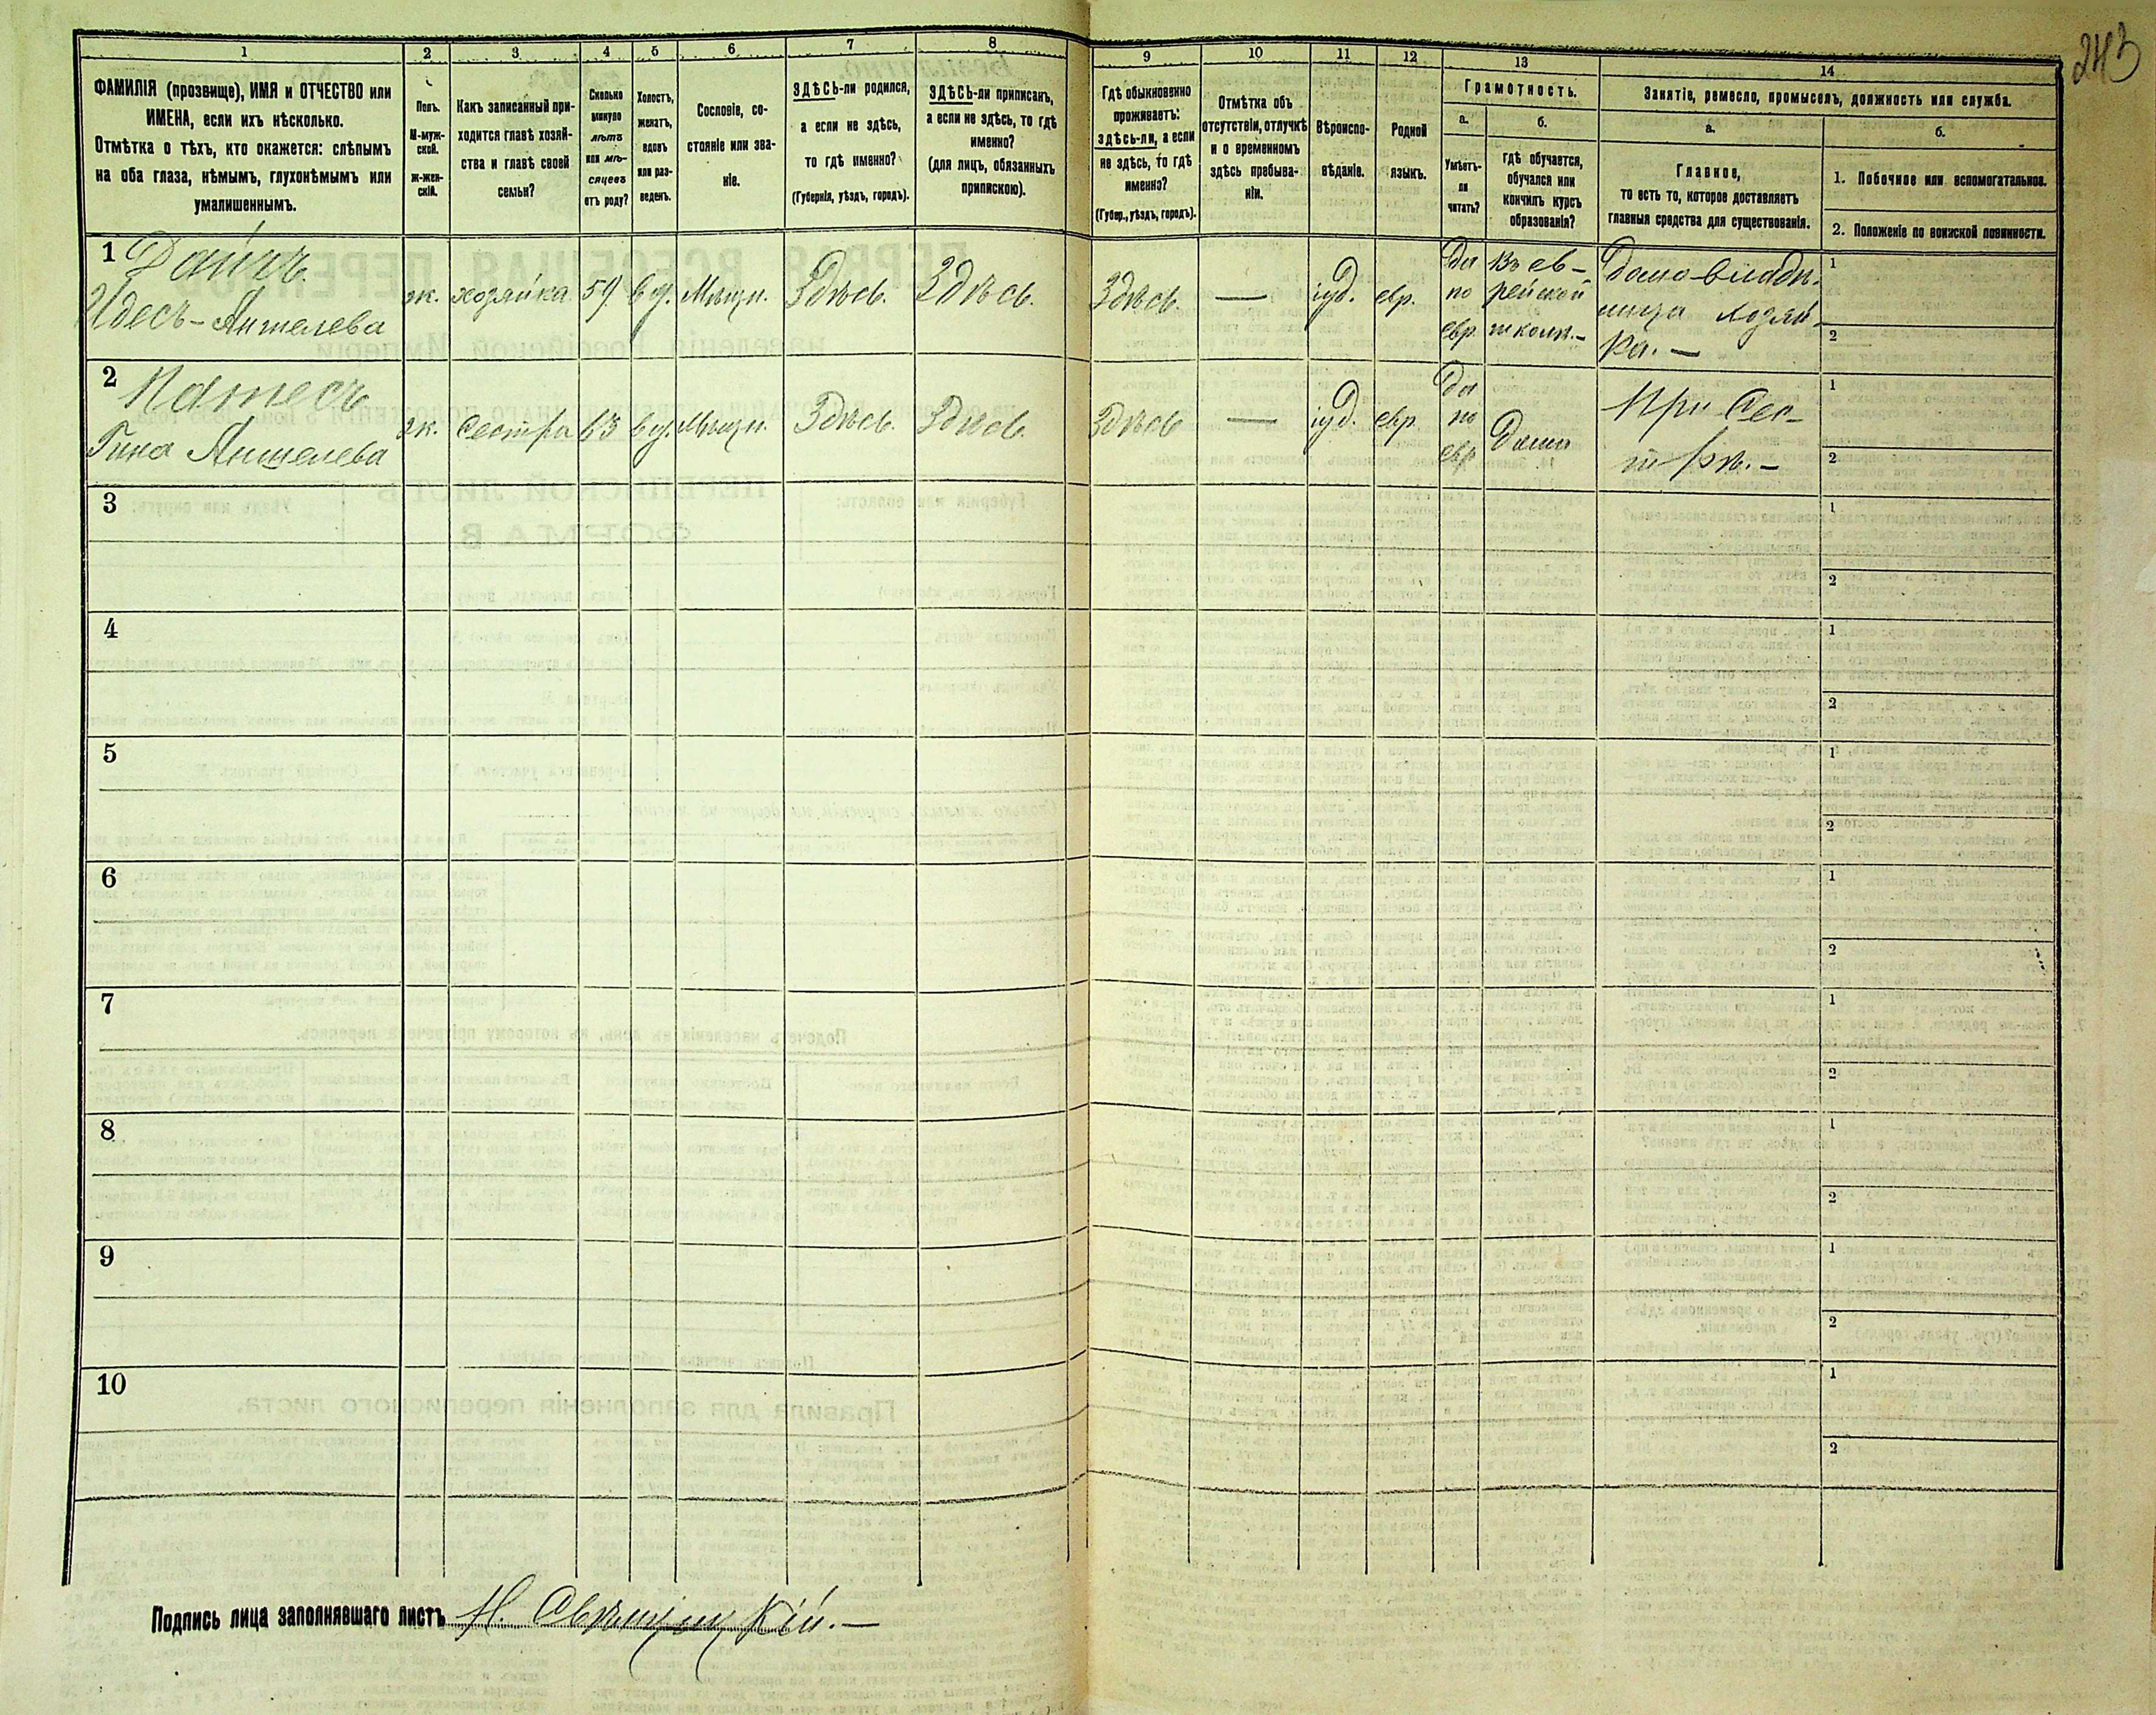 243
1 2 3 4 5 6 7 8 9 10 11 12 13 14
ФАМИЛІЯ (прозвище), ИМЯ и ОТЧЕСТВО или
ИМЕНА, если ихъ нѣсколько.
Отмѣтка о тѣхъ, кто окажется: слѣпымъ
на оба глаза, нѣмымъ, глухонѣмымъ или
умалишеннымъ.
Полъ.
М-муж-
ской.
ж-жен-
скій.
Какъ записанный при-
ходится главѣ хозяй-
ства и главѣ своей
семьи?
Сколько
минуло
лѣтъ
или мѣ-
сяцевъ
отъ роду?
Холостъ,
женатъ,
вдовъ
или раз-
веденъ.
Сословіе, со-
стояніе или зва-
ніе.
ЗДѢСЬ-ли родился,
а если не здѣсь,
то гдѣ именно?
(Губернія, уѣздъ, городъ).
ЗДѢСЬ-ли приписанъ,
а если не здѣсь, то гдѣ
именно?
(для лицъ, обязанныхъ
припискою).
Гдѣ обыкновенно
проживаетъ:
здѣсь-ли, а если
не здѣсь, то гдѣ
именно?
(Губер., уѣздъ, городъ).
Отмѣтка объ
отсутствіи, отлучкѣ
и о временномъ
здѣсь пребыва-
ніи.
Вѣроиспо-
вѣданіе.
Родной
языкъ.
Грамотность.
а.
Умѣетъ-
ли
читать?
б.
гдѣ обучается,
обучался или
кончилъ курсъ
образованія?
Занятіе, ремесло, промыселъ, должность или служба.
а.
Главное,
то есть то, которое доставляетъ
главныя средства для существованія.
б.
1. Побочное или вспомогательное.
2. Положеніе по воинской повинности.
1
Идесъ-Аншелева
ж. хозяйка 59 вд. Мѣщн. Здѣсь. Здѣсь. Здѣсь — іуд. евр.
Да
по
евр.
Въ ев-
рейской
школѣ.-
Домовладѣ-
лица хозяй-
ка. —
1
2
2
Гина Аншелева
ж. Сестра 63 вд. Мѣщн. Здѣсь. Здѣсь. Здѣсь — іуд. евр.
Да
по
евр
Дома
При Сес-
трѣ. -
1
2
3
1
2
4
1
2
5
1
2
6
1
2
7
1
2
8
1
2
9
1
2
10
1
2
Подпись лица заполнявшаго листъ Н. Свѣнцицкій. —